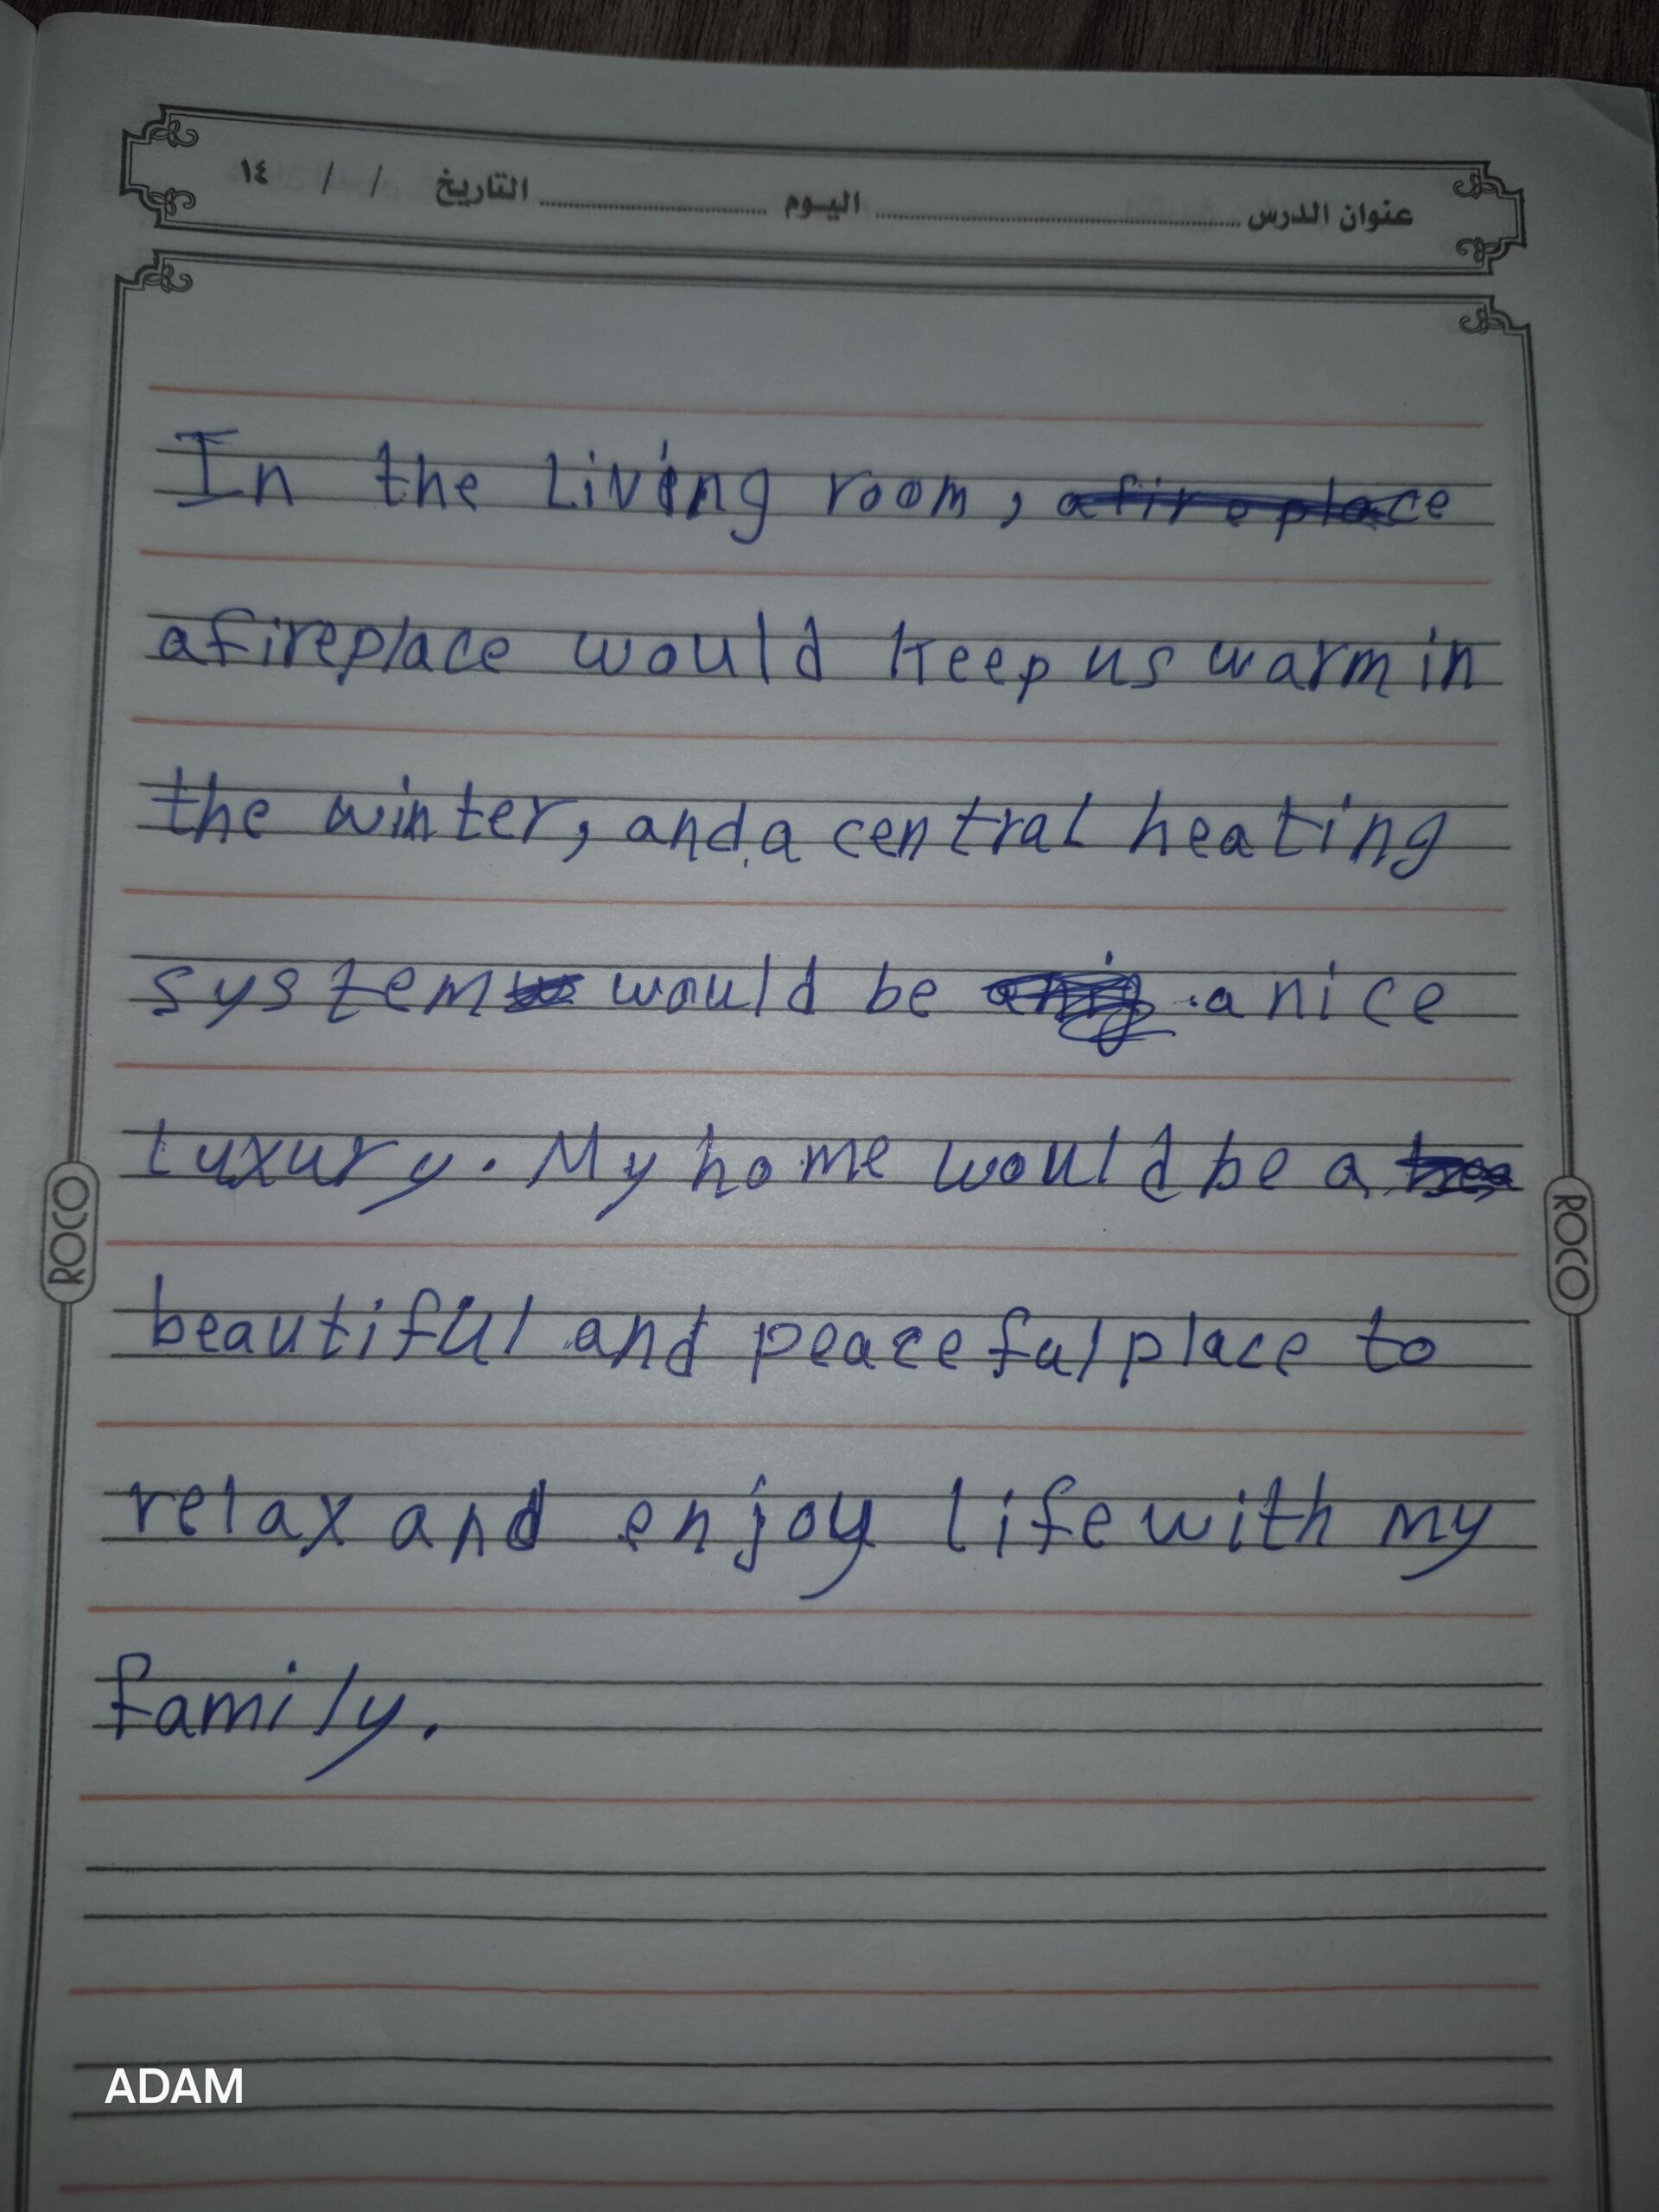 عنوان الدرس ........................ اليوم ........................ التاريخ / / ١٤
In the Living room, a fireplace
a fireplace would keep us warm in
the winter, and a central heating
system would be a nice
Luxury. My home would be a
beautiful and peaceful place to
relax and enjoy life with my
family.
ROCO
ROCO
ADAM